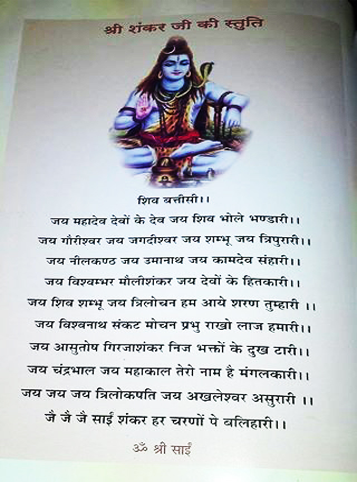 श्री शंकर जी की स्तुति
शिव बत्तीसी।।
जय महादेव देवों के देव जय शिव भोले भण्डारी।।
जय गौरीश्वर जय जगदीश्वर जय शम्भू जय त्रिपुरारी।।
जय नीलकण्ठ जय उमानाथ जय कामदेव संहारी।।
जय विश्वम्भर मौलीशंकर जय देवों के हितकारी।।
जय शिव शम्भू जय त्रिलोचन हम आये शरण तुम्हारी ।।
जय विश्वनाथ संकट मोचन प्रभु राखो लाज हमारी।।
जय आसुतोष गिरजाशंकर निज भक्तों के दुख टारी।।
जय चंद्रभाल जय महाकाल तेरो नाम है मंगलकारी।।
जय जय जय त्रिलोकपति जय अखलेश्वर असुरारी ।।
जै जै जै साईं शंकर हर चरणों पे बलिहारी।।
ॐ श्री साईं